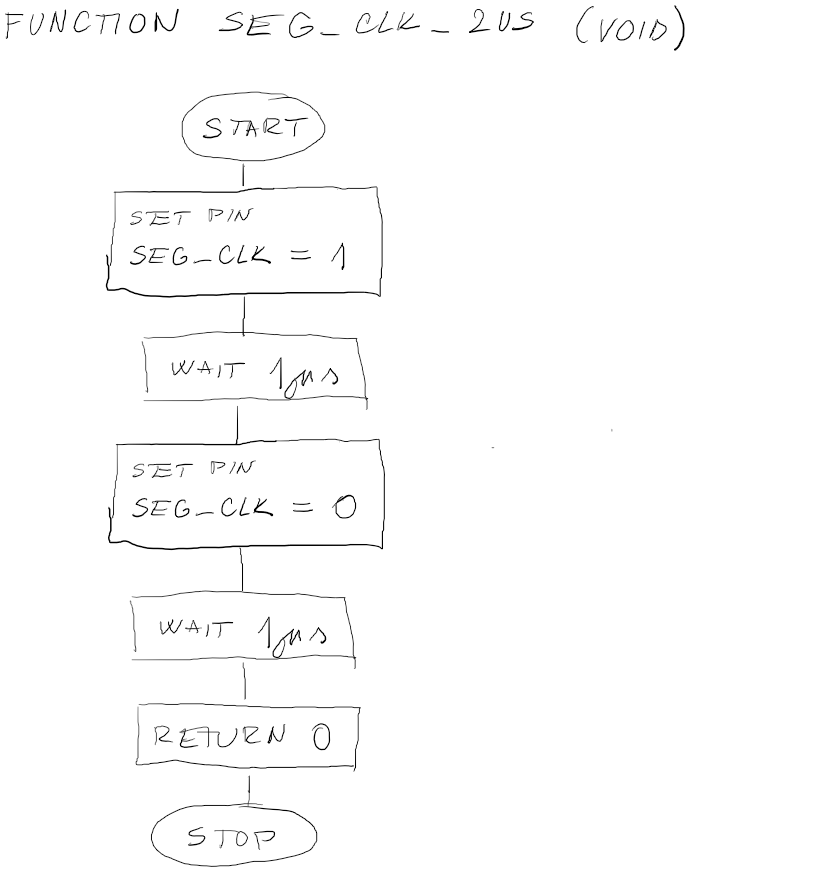 FUNCTION SEG_CLK_2US (VOID)
START
SET PIN
SEG_CLK = 1
WAIT 1µs
SET PIN
SEG_CLK = 0
WAIT 1µs
RETURN 0
STOP